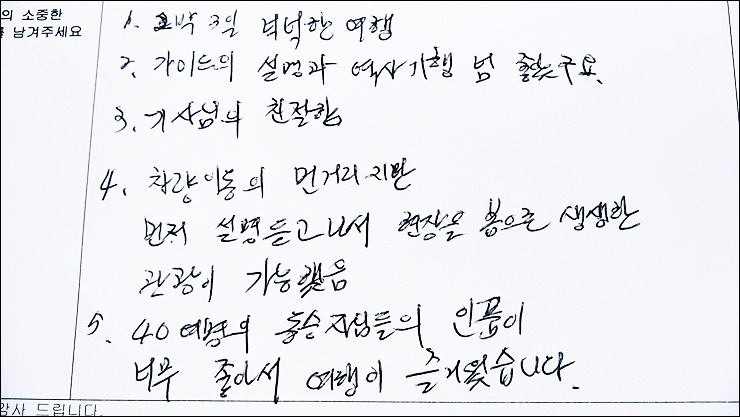 의 소중한
를 남겨주세요
1. 2박 3일 넉넉한 여행
2. 가이드의 설명과 역사기행 넘 좋았구요.
3. 기사님의 친절함
4. 차량이동의 먼거리지만
먼저 설명듣고나서 현장을 봄으로 생생한
관광이 가능했음
5. 40여명의 지심들의 인품이
너무 좋아서 여행이 즐거웠습니다.
감사 드립니다.